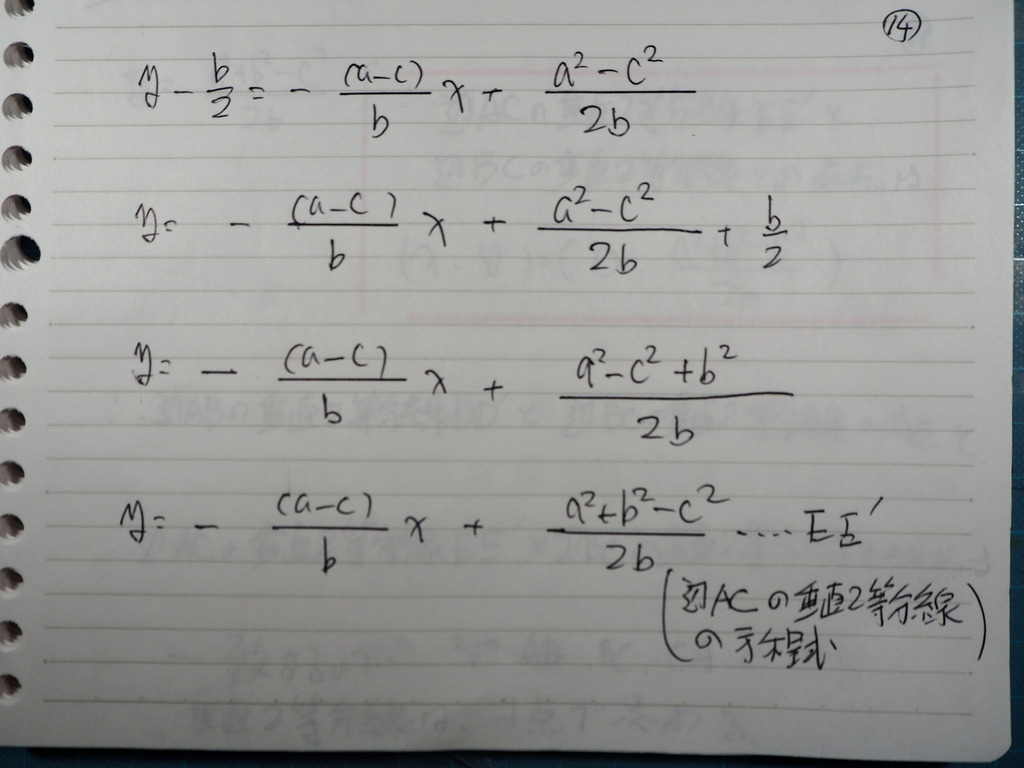 ⑭
y - b/2 = - (a-c)/b x + (a² - c²)/2b
y = - (a-c)/b x + (a² - c²)/2b + b/2
y = - (a-c)/b x + (a² - c² + b²)/2b
y = - (a-c)/b x + (a² + b² - c²)/2b ‥‥ EE′
(辺ACの垂直2等分線
の方程式)